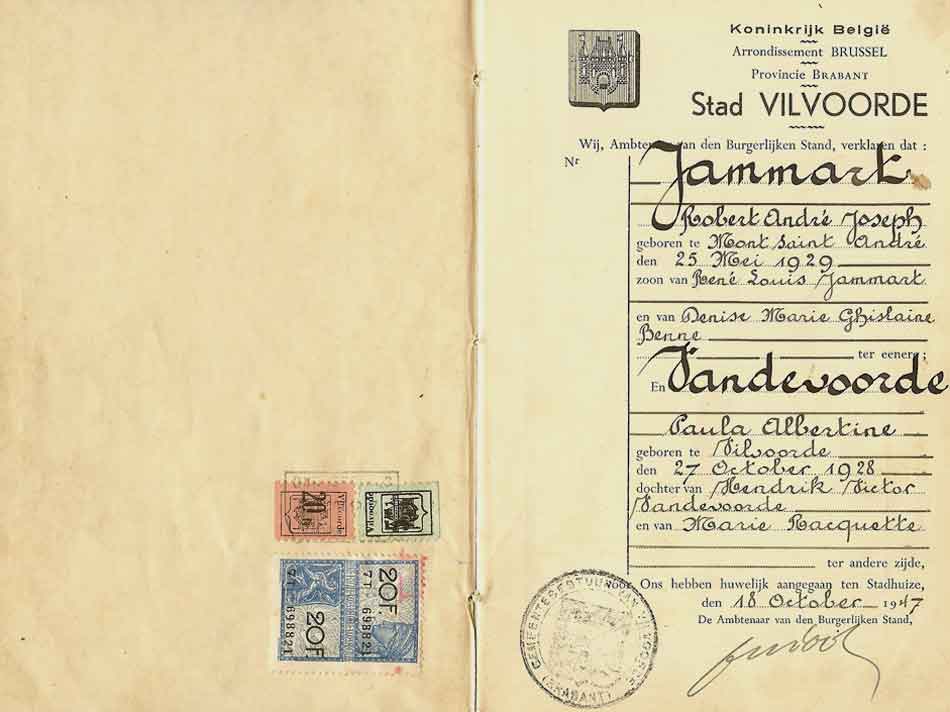 Koninkrijk België
Arrondissement BRUSSEL
Provincie BRABANT
Stad VILVOORDE
Wij, Ambtenaar van den Burgerlijken Stand, verklaren dat :
Nr
Jammart
Robert André Joseph
geboren te Mont Saint André
den 25 Mei 1929
zoon van René Louis Jammart
en van Denise Marie Ghislaine
Benne
ter eener ;
En Vandevoorde
Paula Albertine
geboren te Vilvoorde
den 27 October 1928
dochter van Hendrik Victor
Vandevoorde
en van Marie Racquette
ter andere zijde,
voor Ons hebben huwelijk aangegaan ten Stadhuize,
den 18 October 1947
De Ambtenaar van den Burgerlijken Stand,
GEMEENTEBESTUUR VAN VILVOORDE
(BRABANT)
Vilvoorde
20 fr
Vilvoorde
20F.
7T. 698821
20F.
7T. 698821